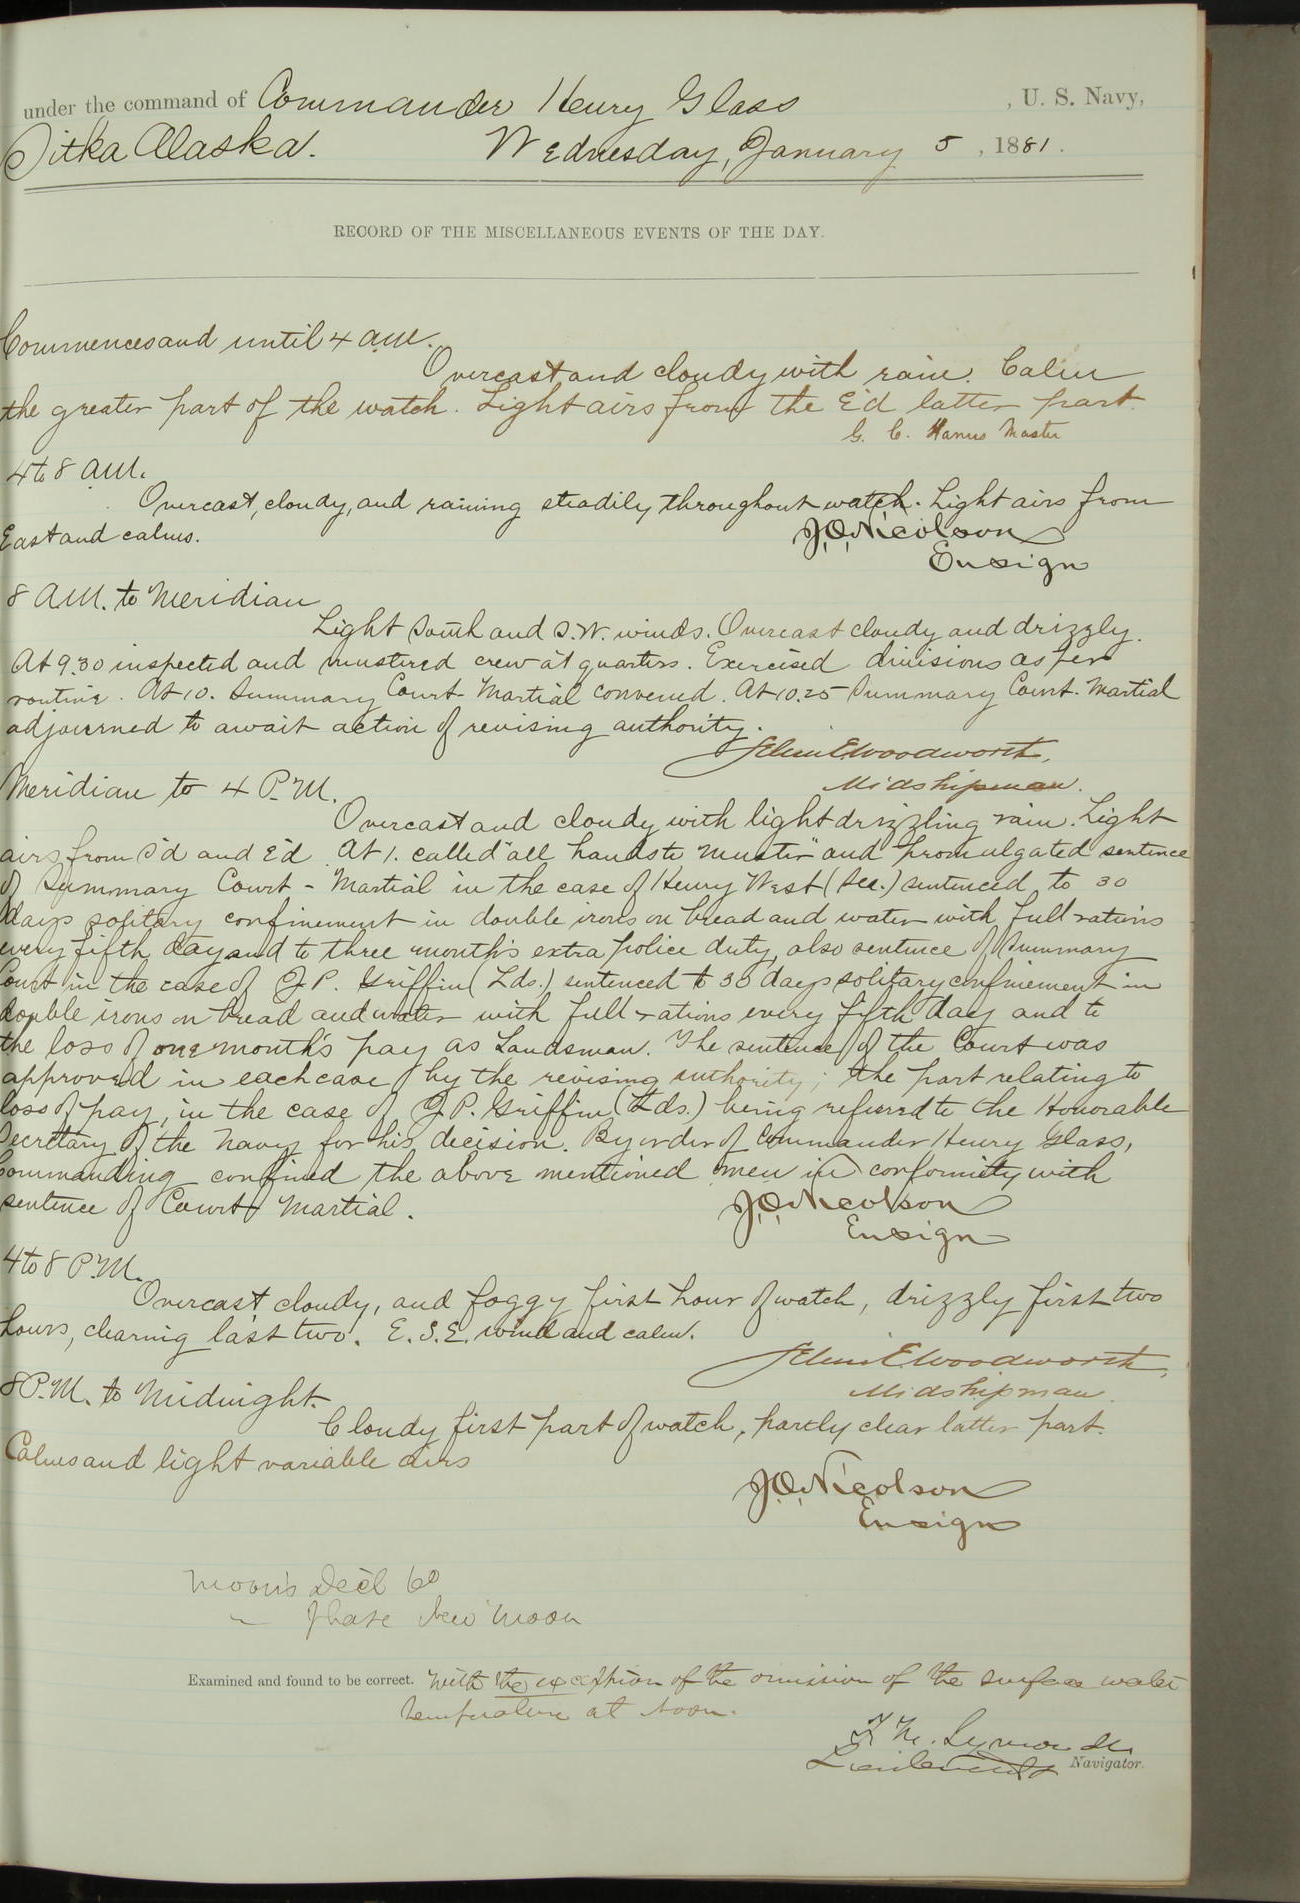 under the command of Commander Henry Glass , U. S. Navy,
Sitka Alaska. Wednesday, January 5 , 1881.
RECORD OF THE MISCELLANEOUS EVENTS OF THE DAY.
Commences and until 4 a.m.
Overcast and cloudy with rain. Calm
the greater part of the watch. Light airs from the E'd latter part.
G. C. Hanus Master
4 to 8 a.m.
Overcast, cloudy, and raining steadily throughout watch. Light airs from
East and calms.
J.O. Nicolson
Ensign
8 A.M. to Meridian
Light South and S.W. winds. Overcast cloudy and drizzly.
At 9.30 inspected and mustered crew at quarters. Exercised divisions as per
routine. At 10. Summary Court-Martial convened. At 10.25 Summary Court-Martial
adjourned to await action of revising authority.
Selim E. Woodworth,
Midshipman.
Meridian to 4 P.M.
Overcast and cloudy with light drizzling rain. Light
airs from S'd and E'd. At 1. called "all hands to muster" and promulgated sentence
of Summary Court-Martial in the case of Henry West (Sea.) sentenced to 30
days solitary confinement in double irons on bread and water with full rations
every fifth day and to three month's extra police duty, also sentence of Summary
Court in the case of J.P. Griffin (Lds.) sentenced to 30 days solitary confinement in
double irons on bread and water with full rations every fifth day and to
the loss of one month's pay as Landsman. The sentence of the Court was
approved in each case by the revising authority; the part relating to
loss of pay, in the case of J.P. Griffin (Lds.) being referred to the Honorable
Secretary of the Navy for his decision. By order of Commander Henry Glass,
Commanding confined the above mentioned men in conformity with
sentence of Court Martial.
J.O. Nicolson
Ensign
4 to 8 P.M.
Overcast cloudy, and foggy first hour of watch, drizzly first two
hours, clearing last two. E.S.E. wind and calm.
Selim E. Woodworth,
Midshipman.
8 P.M. to Midnight.
Cloudy first part of watch, partly clear latter part.
Calms and light variable airs
J.O. Nicolson
Ensign
Moon's Decl 60
" Phase New Moon
Examined and found to be correct. With the exception of the omission of the surface water
temperature at Noon.
F. M. Symonds
Lieutenant Navigator.